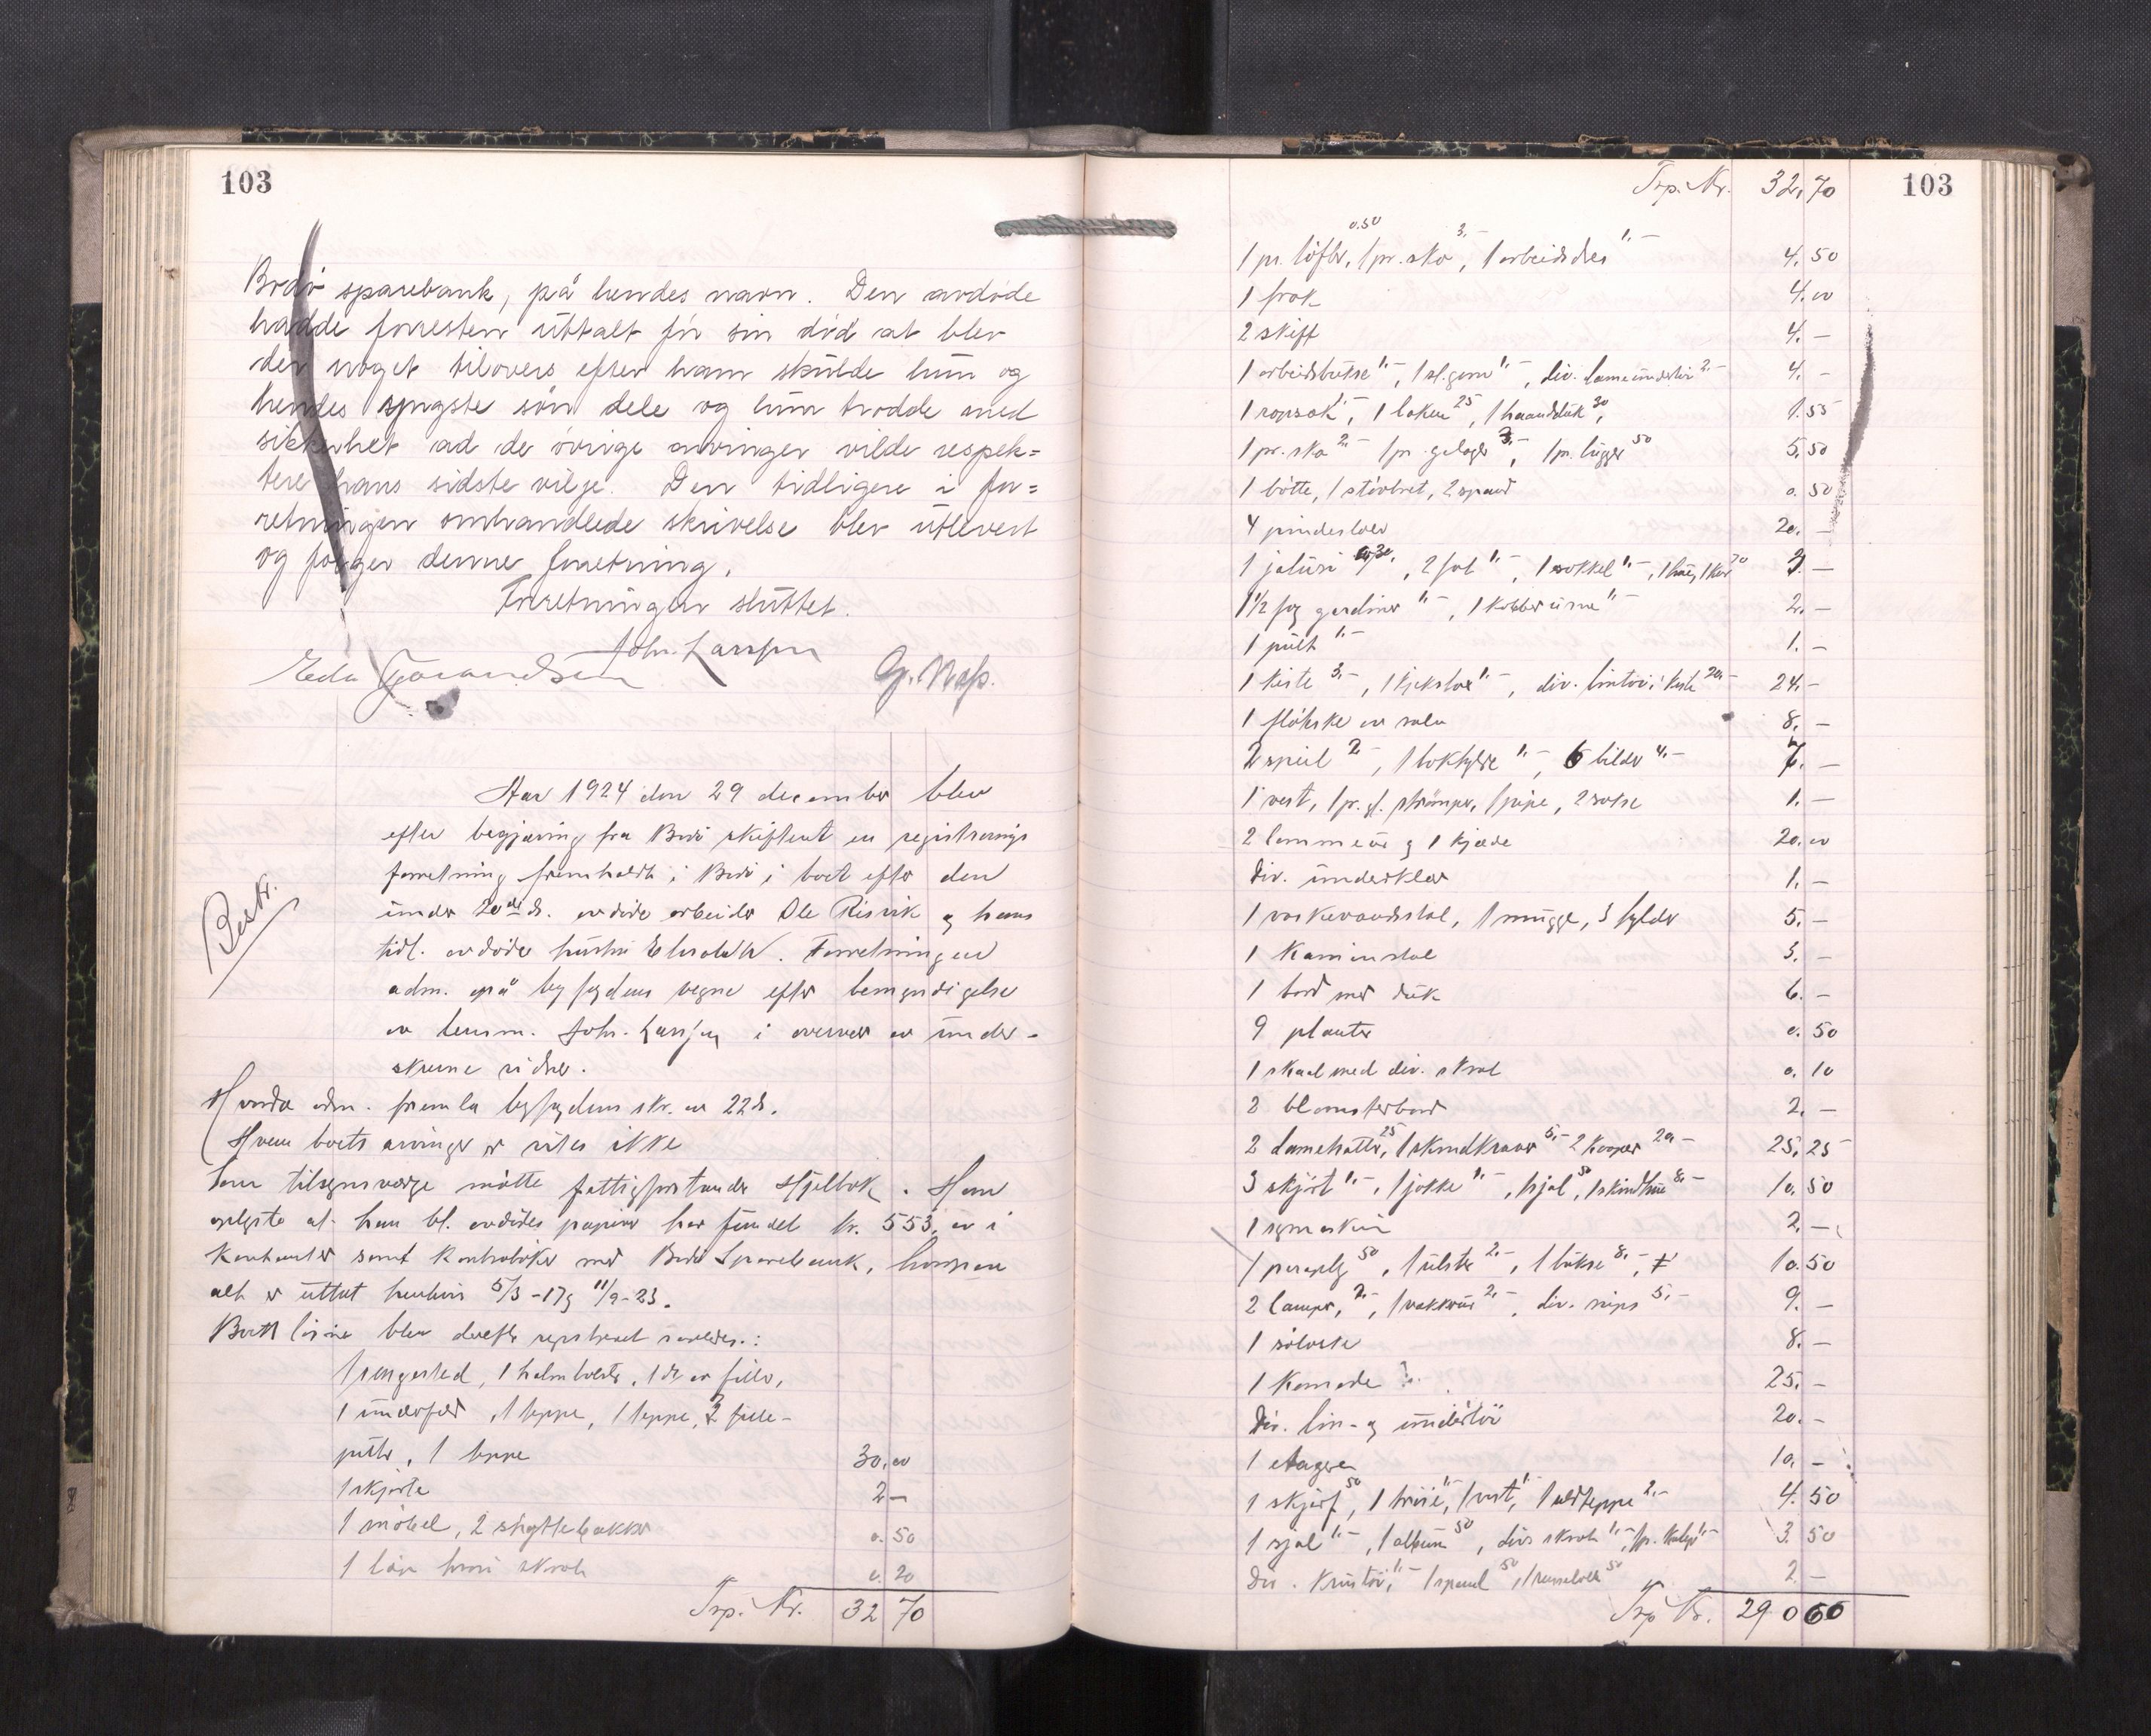 103
Bodö sparebank, på hendes navn. Den avdöde
hadde forresten üttalt för sin död at blev
der noget tilovers efter ham skülde hün og
hendes yngste sön dele og hün trodde med
sikkerhet ad de övrige arvinger vilde respek=
tere hans sidste vilje. Den tidligere i for=
retningen omhandlede skrivelse blev ütlevert
og fölger denne forretning.
Forretningen slüttet.
Joh. Larssen
G. Næss.
Bestr.
Aar 1924 den 29 december blev
efter begjæring fra Bodö skifteret en registrerings
forretning fremholdt i Bodö i boet efter den
ünder 20de ds. avdöde arbeider Ole Risvik og hans
tidl. avdöde hüstrü Elisabeth. Forretningen
adm. på byfogdens vegne efter bemyndigelse
av lensm. Joh. Larssen i overvær av ünder-
skrevne vidner.
adm. fremla byfogdens skr. av 22 ds.
Hvem boets arvinger er vites ikke
Som tilsynsværge mötte fattigforstander Hjelbak. Han
oplyste at han bl. avdödes papirer har fündet kr. 553,00 i
kontanter samt kontraböker med Bodö Sparebank, hvorpaa
alt er üttat henhvis 5/3-17 og 11/9-23.
Boets lösöre blev derefter registreret saaledes:
1 sengested, 1 halmbolster, 1 do av filler,
1 ünderfeld, 1 teppe, 1 teppe, 2 fille-
püter, 1 teppe 30,00
1 skjorte 2 -
1 möbel, 2 spyttebakker 0. 50
1 skrab 0. 20
Trp. Kr. 32 70
Trp. Kr. 32,70
103
1 pr. töfler 0.50, 1 pr. sko 3,-, 1 arbeidsdres 1,- 4. 50
1 frak 4.00
2 skift 4. -
1 arbeidsbükse 1,-, 1,-, div. dameündertöi 2,- 4. -
1 ropsæk 1,-, 1 laken 25, 1 haanddük 30, 1.55
1 pr. sko 2,- 1 pr. galoger 3,-, 1 pr. lügger 50 5,50
1 bötte, 1 störbret, 2 spand 0. 50
4 pindestoler 20. -
1 jalüsi, 2 fat 1,-, 1 sokkel 1,-, 3 -
1 1/2 fag gardiner 1,-, 1 kobber 1,- 2. -
1 pült 1,- 1. -
1 kiste 3,-, 1 kjøkstol 1,-, div. lintöi i kiste 20,- 24. -
8. -
2 speil 2,-, 1 bokhylde 1,-, 6 bilder 4,- 7. -
1 vest, 1 pr. gl. strömper, 1 pipe, 2 sokke 1. -
2 lommeür og 1 kjæde 20.00
Div. ünderklær 1. -
1 vaskevandsstol, 1 mügge, 3 hylder 5. -
1 Kaminstol 3. -
1 bord med dük 6. -
9 planter 0. 50
1 skaal med div. skrab 0. 10
2 blomsterbord 2. -
2 damehatter 25, 1 skindkrave 5,- 2 kaaper 20,- 25,25
3 skjört 1,-, 1 jakke 1,-, 1 sjal 50, 1 skindhüe 8,- 10,50
1 symaskin 2. -
1 paraply 50, 1 ülster 2,-, 1 bükse 8,-, 10.50
2 lamper, 2,-, 1 vækkeür 2,-, div. nips 5,- 9. -
8. -
1 Komode 25. -
Div. lin- og ündertöi 20. -
1 etagere 10. -
1 skjerf 50, 1 tröie 1,-, 1 vest 1,-, 1 uldteppe 2,- 4. 50
1 sjal 1,-, 1 album 50, div. skrab 1,-, 1 pr. 1,- 3. 50
Div. 1,- 1 spand 50, 50 2. -
Trp Kr. 290 60